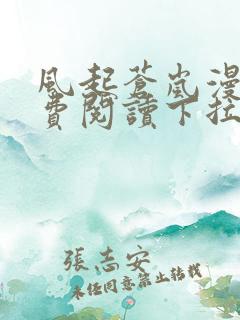 風起蒼嵐漫
費閱讀下拉
張志安
未經同意禁止轉載